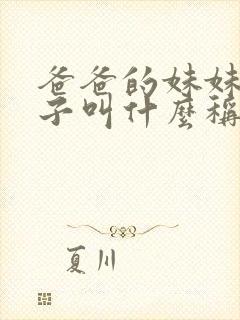 爸爸的妹妹
子叫什麼稱
夏川